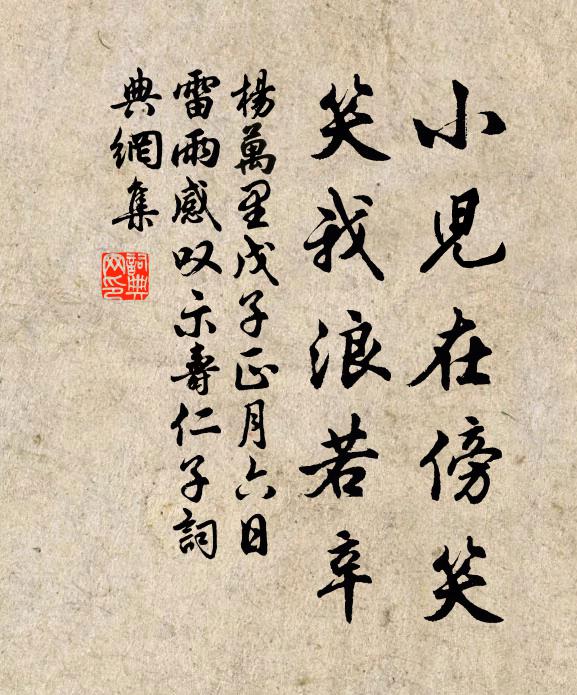 小児在傍笑
笑我浪若辛
楊萬里戊子正月六日
雷雨感叹示壽仁子詞
典網集
詞典網印